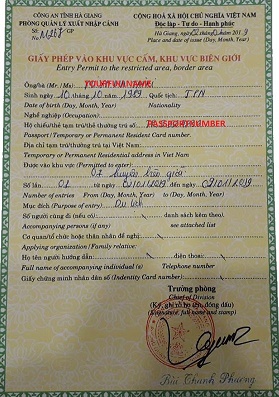 CÔNG AN TỈNH HÀ GIANG
PHÒNG QUẢN LÝ XUẤT NHẬP CẢNH
CỘNG HOÀ XÃ HỘI CHỦ NGHĨA VIỆT NAM
Độc lập - Tự do - Hạnh phúc
Số: /GP
Nº
Place and date of issue (Day, Month, Year)
GIẤY PHÉP VÀO KHU VỰC CẤM, KHU VỰC BIÊN GIỚI
Entry Permit to the restricted area, border area
Ông/bà (Mr./Ms):
Sinh ngày 10 tháng 10 năm 1989 Quốc tịch:
Date of birth (Day, Month, Year) Nationality
Nghề nghiệp (Occupation)
Hộ chiếu/thẻ tạm trú/thẻ thường trú số PASSPORT NUMBER
Passport/Temporary or Permanent Resident Card number.
Địa chỉ tạm trú/thường trú tại Việt Nam
Temporary or Permanent Residential address in Viet Nam
Được vào khu vực (Permitted to enter):
07 huyện biên giới
Số lần 01 từ ngày đến ngày
Number of entries From (Day, Month, Year) to (Day, Month, Year)
Mục đích (Purpose of entry) Du lịch
Số người cùng đi (nếu có): danh sách kèm theo).
Accompanying persons (if any) see attached list
Cơ quan/tổ chức hoặc thân nhân đề nghị:
Applying organization/Family relative:
Họ tên người hướng dẫn: điện thoại:
Full name of accompanying individual (s) Telephone number
Giấy chứng minh nhân dân số (Indentity Card number):
Trưởng phòng
Chief of Division
(Ký, ghi rõ họ tên, đóng dấu)
(Signature, full name and stamp)